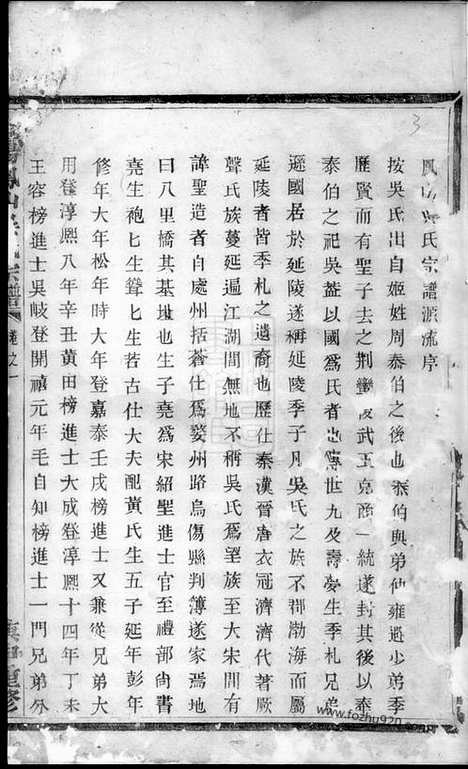 3
鳳山吳氏宗譜源流序
按吳氏出自姬姓周泰伯之後也泰伯與弟仲雍避少弟季
歷賢而有聖子去之荆蠻及武王克商一統遂封其後以奉
泰伯之祀吳蓋以國爲氏者也傳世九及壽夢生季札兄弟
遜國居於延陵遂稱延陵季子凡吳氏之族不郡渤海而屬
延陵者皆季札之遺裔也歷仕秦漢晉唐衣冠濟濟代著厥
聲氏族蔓延遍江湖間無地不稱吳氏爲望族至大宋間有
諱聖造者自處州括蒼仕爲婺州路烏傷縣判簿遂家焉地
曰八里橋其基址也生子堯爲宋紹聖進士官至禮部尚書
堯生袍匕生聳匕生若古仕大夫配黃氏生五子延年彭年
修年大年松年時大年登嘉泰壬戌榜進士又兼從兄弟大
用登淳熙八年辛丑黃田榜進士大成登淳熙十四年丁未
王容榜進士吳岐登開禧元年毛自知榜進士一門兄弟外
宗譜
卷之一
重修
www.fozhu920.com